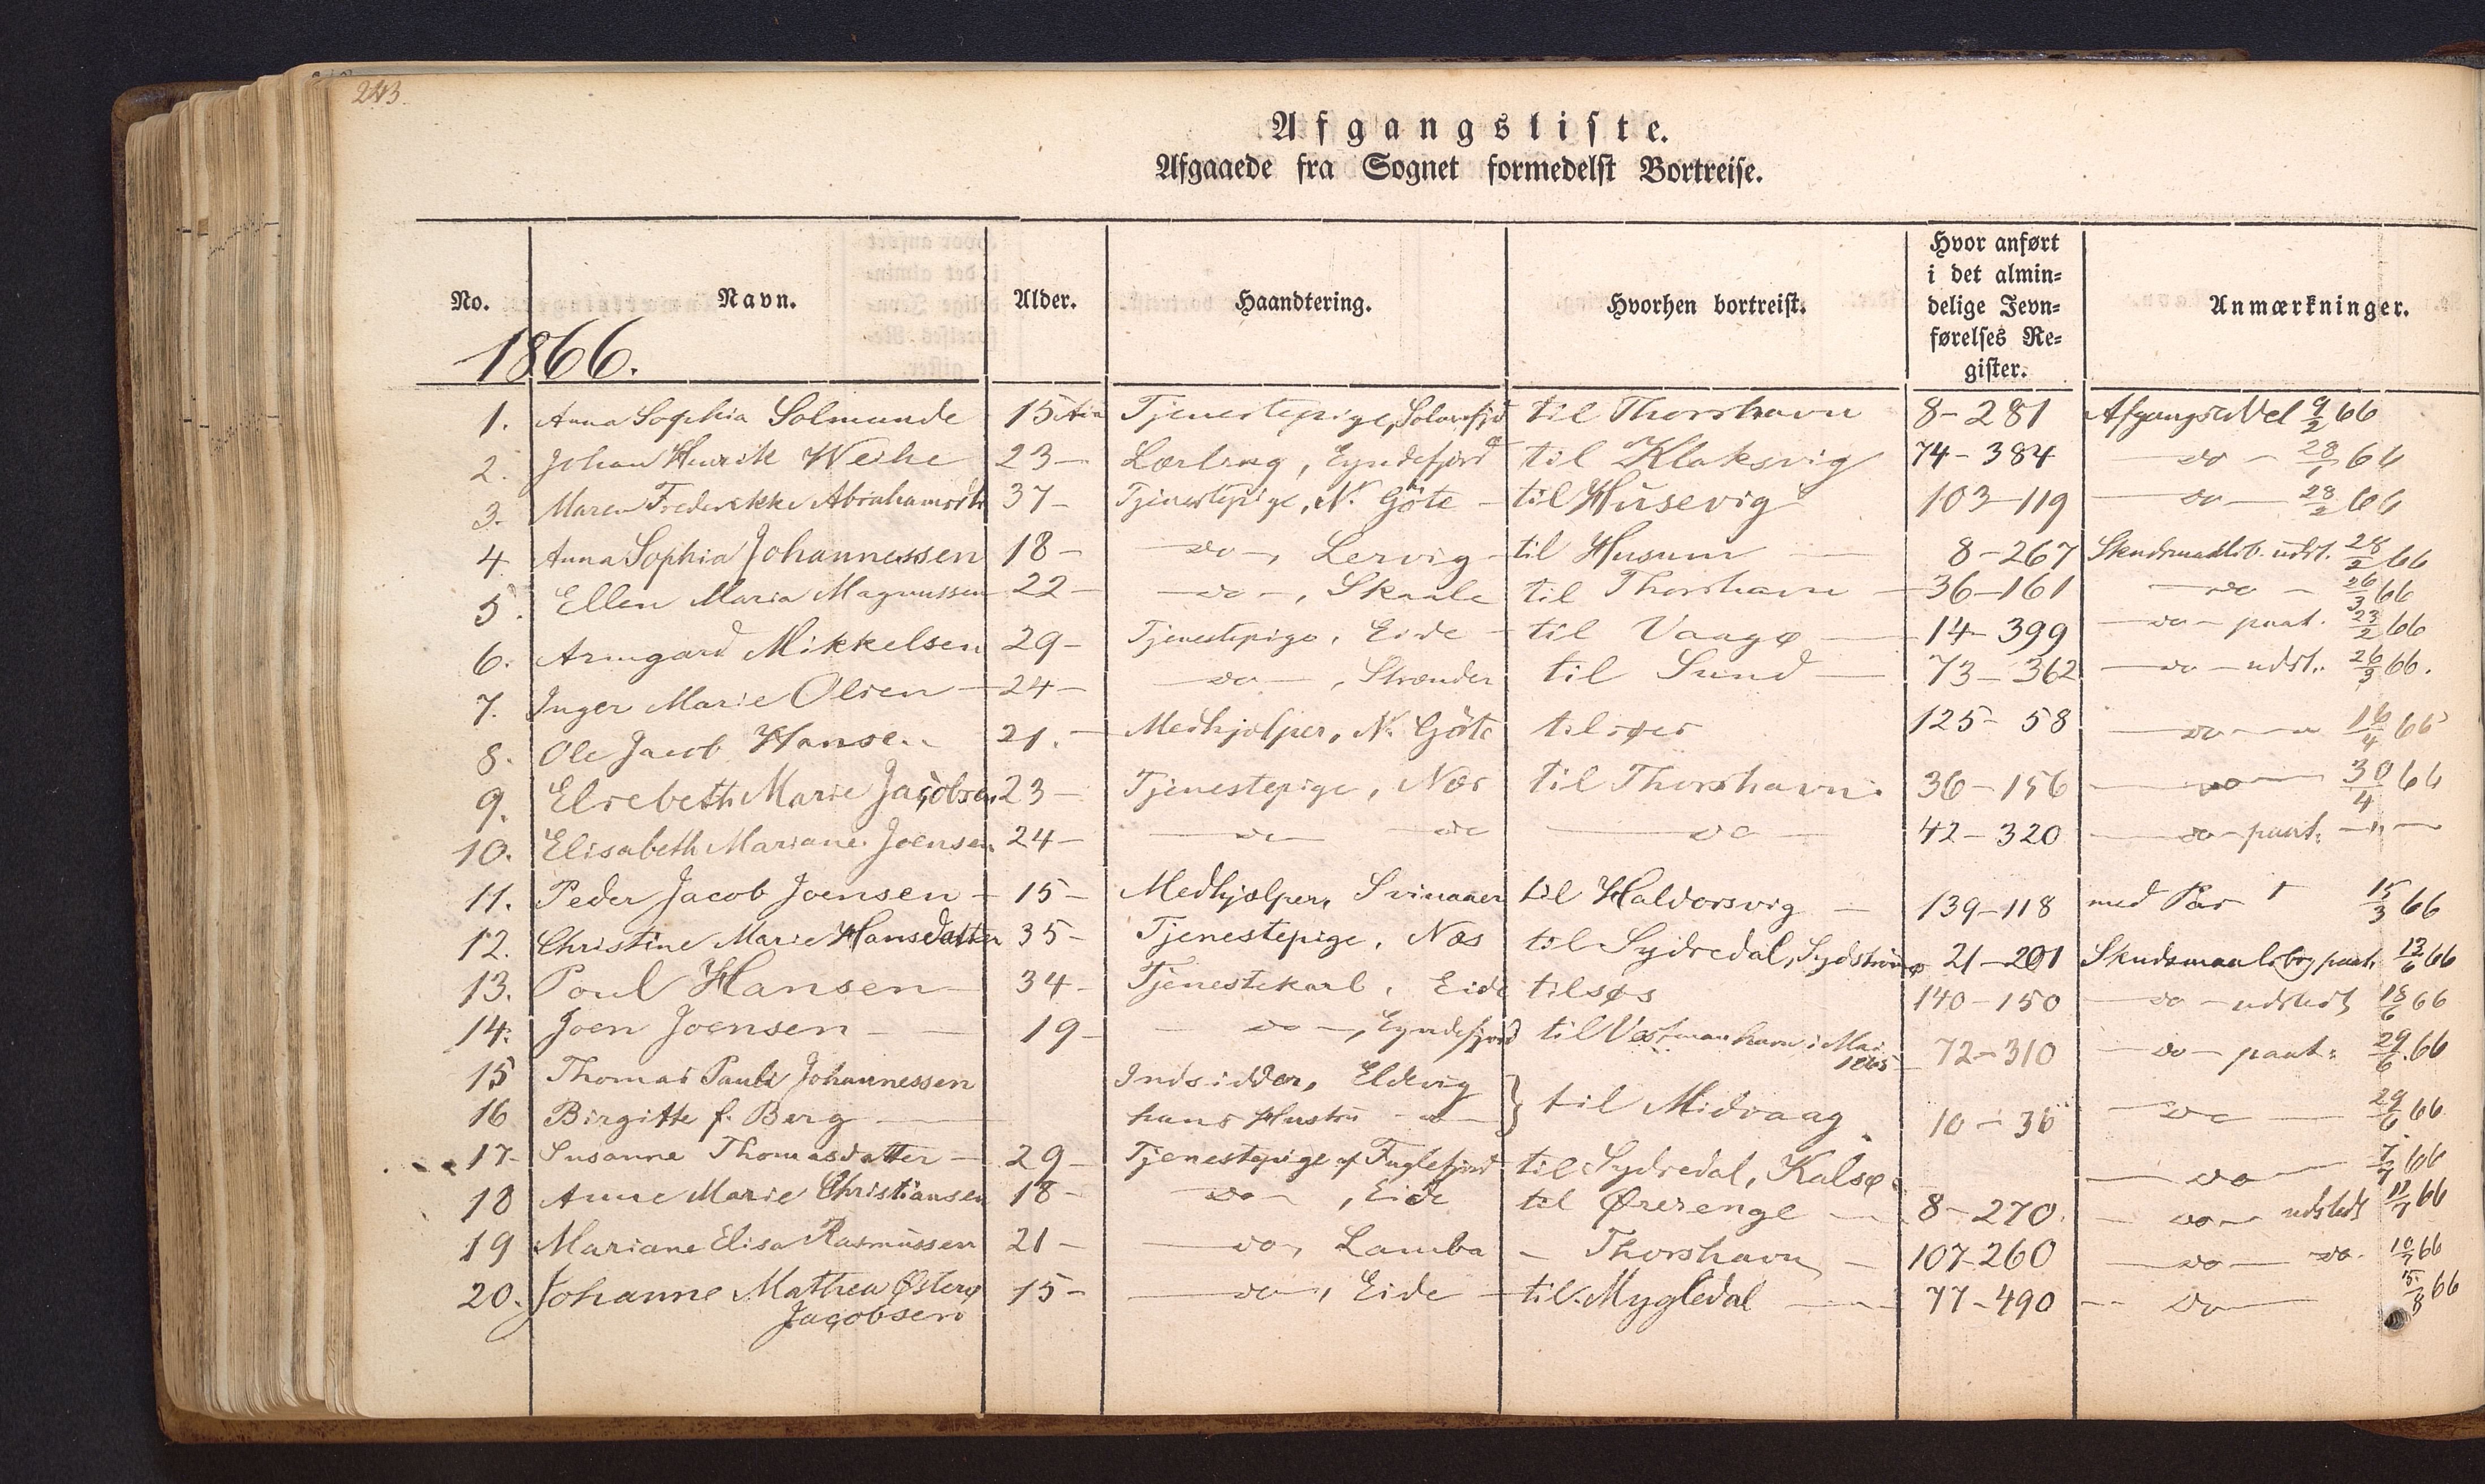 243.
Afgangsliste.
Afgaaede fra Sognet formedelst Bortreise.
No. Navn. Alder. Haandtering. Hvorhen bortreist. Hvor anført i det almin= delige Jevn= førelses Re= gister. Anmærkninger.
1866.
1. Anna Sophia Solmunde 15 Tjenestepige, til Thorshavn 8-281 9/2 66
2. Johan Henrik Weihe 23- Lærling, Eyndefjord til Klaksvig 74-384 -do- 66
3. Maren Frederikke Abrahamsdtr 37- Tjenestepige, N. Göte - til Husevig 103-119 -do- 28/2 66
4 Anna Sophia Johannessen 18- -do-, Lervig - til Husum 8-267 Skudsmaalsb. udst. 28/2 66
5. Ellen Maria Magnussen 22- -do-, Skaale til Thorshavn 36-161 -do- 26/3 66
6. Armgard Mikkelsen 29- Tjenestepige, Eide - til Vaagø 14-399 -do- paat. 23/2 66
7. Inger Marie Olsen 24- -do-, Strænder til Sund 73-362 -do- udst. 26/3 66.
8. Ole Jacob Hansen 21.- Medhjælper, N. Göte tilsøes 125-58 -do- 16/4 66
9. Elsebeth Marie Jacobsen 23- Tjenestepige, Næs til Thorshavn. 36-156 -do- 30/4 66
10. Elisabeth Mariane Joensen 24- -do- do -do- 42-320 -do- paat. -"-
11. Peder Jacob Joensen - 15- Medhjælper, Svinaaer til Haldorsvig - 139-118 med Pas 15/3 66
12. Christine Marie Hansdatter 35- Tjenestepige, Næs til Sydredal, Sydstrømø 21-201 Skudsmaalsbog paat. 13/6 66
13. Poul Hansen 34- Tjenestekarl, Eide tilsøs 140-150 -do- udstedt 18/6 66
14. Joen Joensen - 19- -do-, Eyndefjord til Vestmanhavn i Mai 1865 72-310 -do- paat. 29/6 66
15 Thomas Pauli Johannessen Indsidder, Eldevig
16 Birgitte f. Berg hans Hustru -do- } til Midvaag. 10-36 -do- 29/6 66
17- Susanne Thomasdatter - 29- Tjenestepige af Fuglefjord til Sydredal, Kalsø. -do- 7/7 66
18 Anne Marie Christiansen 18- -do-, Eide til Ørerenge 8-270. -do- udstedt 66
19 Mariane Elisa Rasmussen 21- -do-, Lamba - Thorshavn - 107-260 -do- do. 10/7 66
20. Johanne Mathea Østerø 15- -do-, Eide - til Mygledal 77-490 -do- 15/8 66
Jacobsen